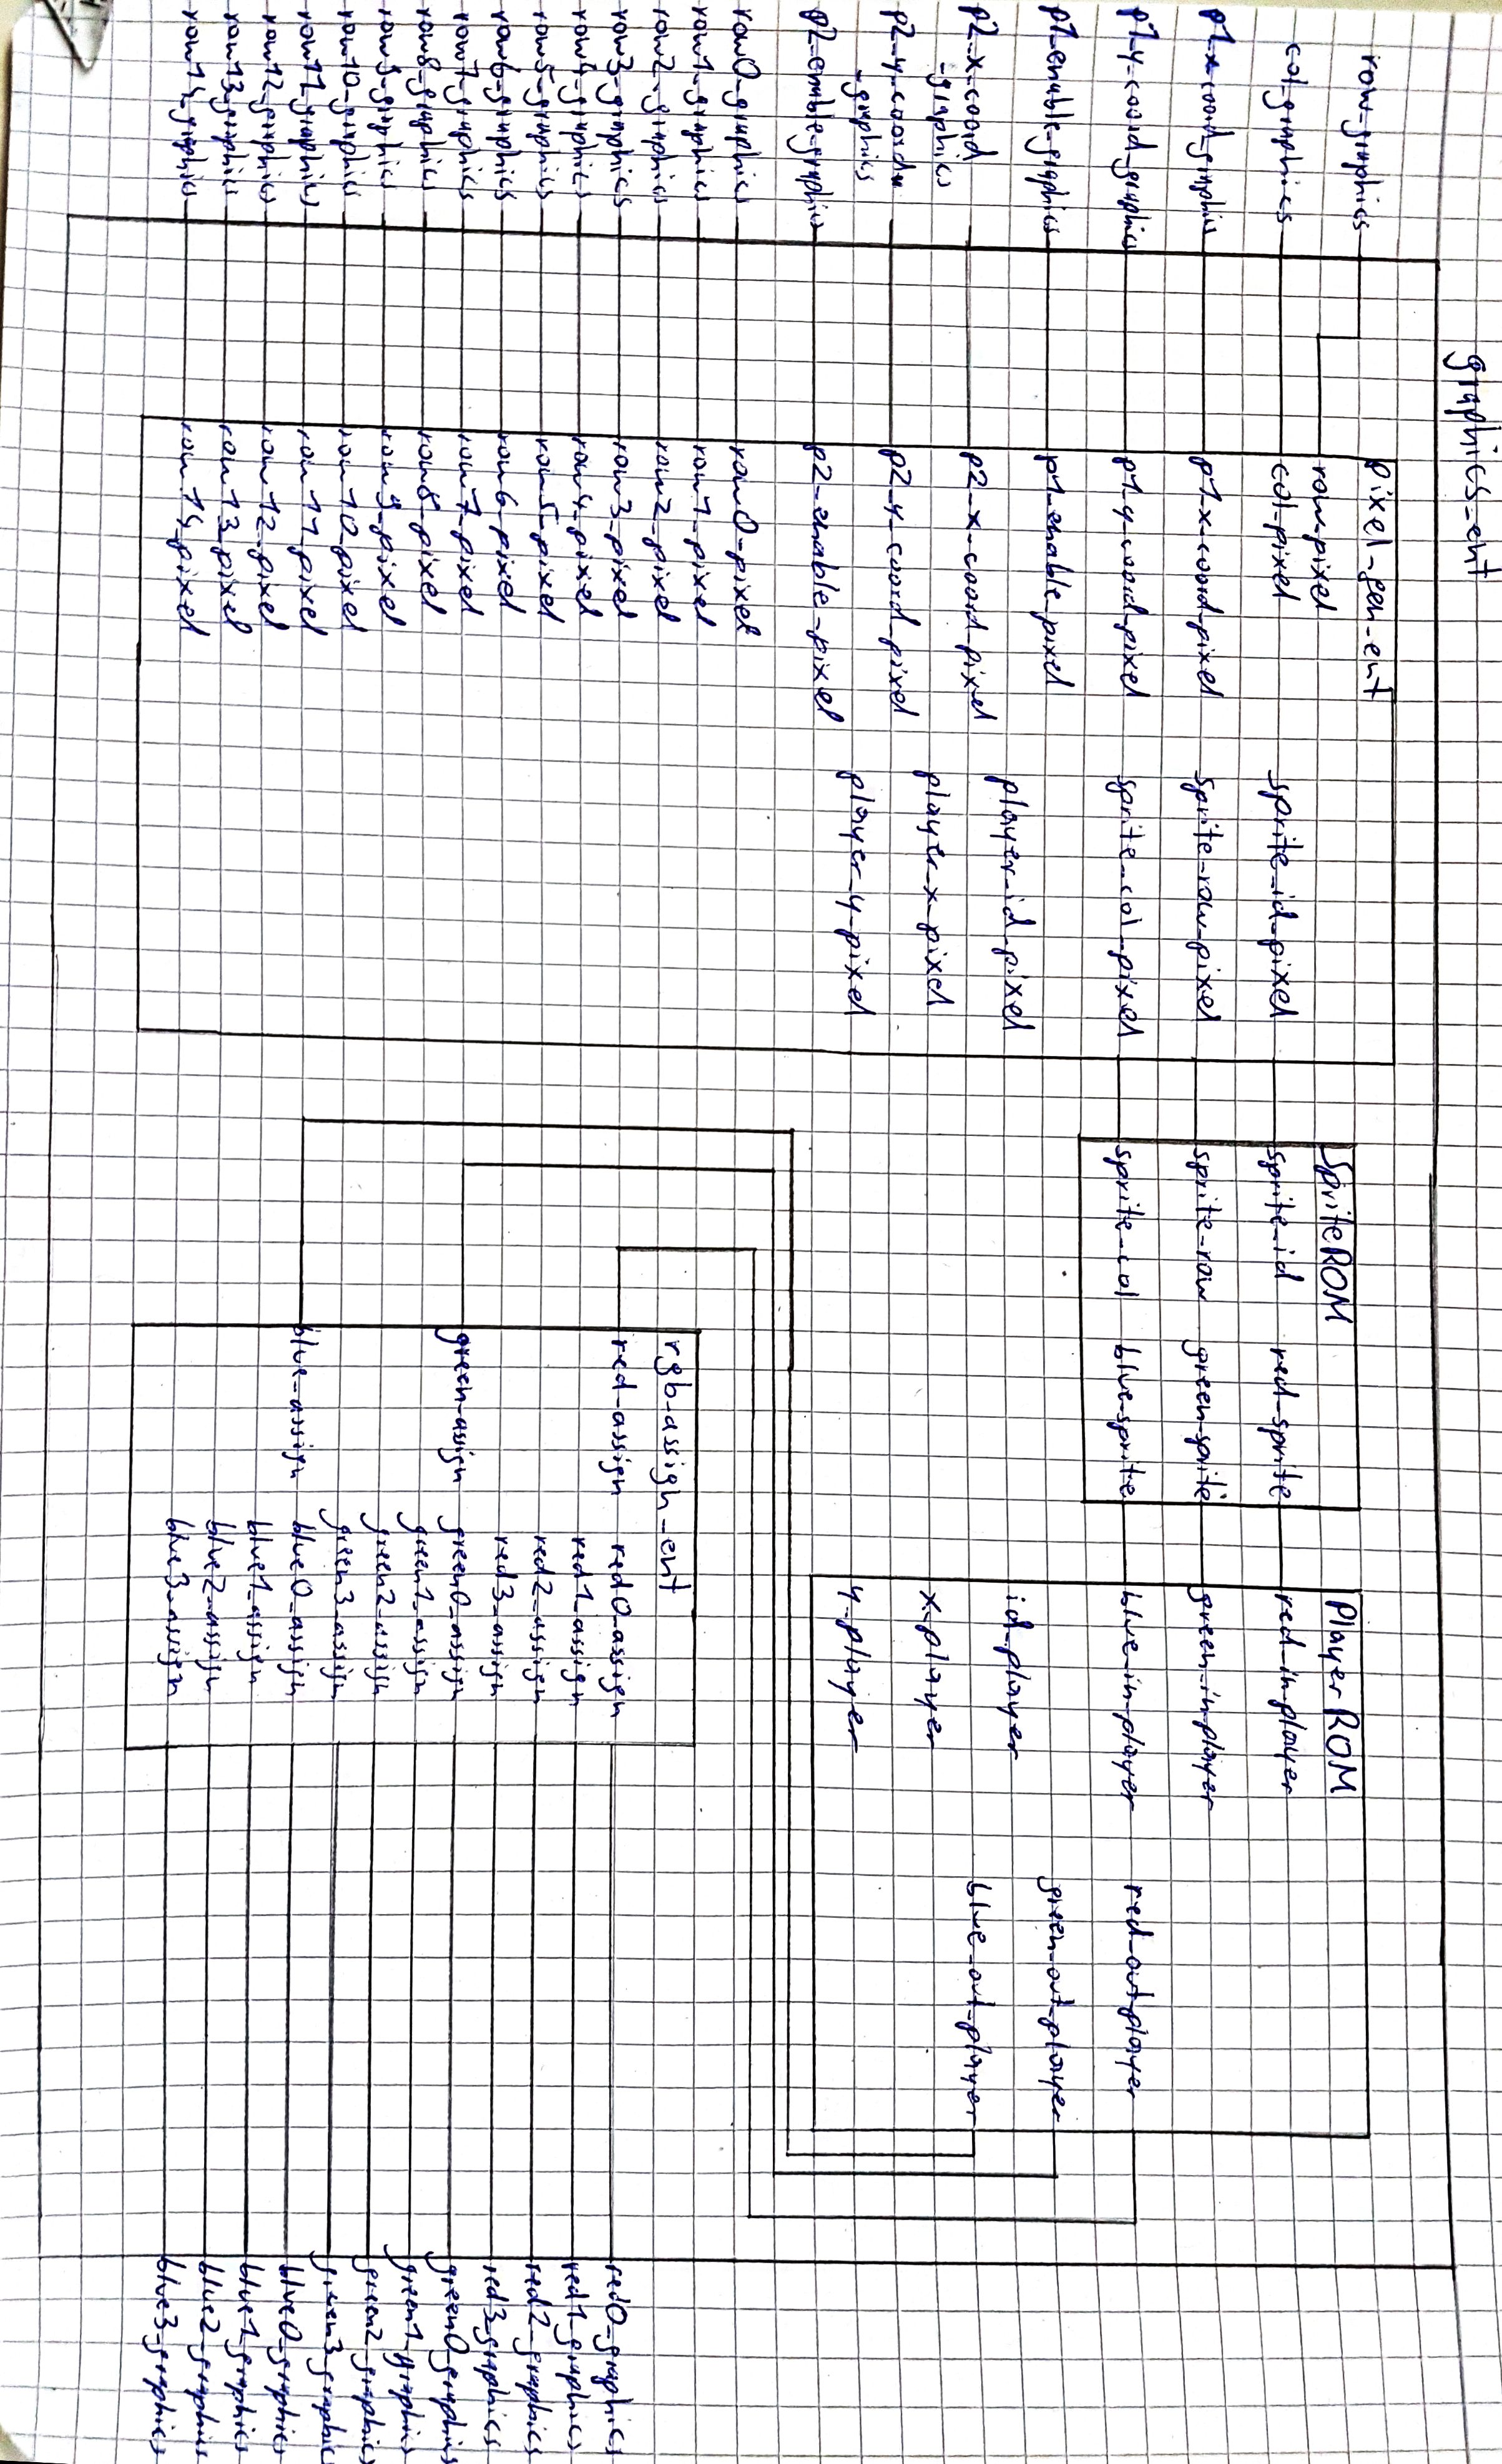 graphics_ent
row_graphics
col_graphics
p1_x_coord_graphics
p1_y_coord_graphics
p1_enable_graphics
p2_x_coord
_graphics
p2_y_coord
_graphics
p2_enable_graphics
row0_graphics
row1_graphics
row2_graphics
row3_graphics
row4_graphics
row5_graphics
row6_graphics
row7_graphics
row8_graphics
row9_graphics
row10_graphics
row11_graphics
row12_graphics
row13_graphics
row14_graphics
pixel_gen_ent
row_pixel
col_pixel
p1_x_coord_pixel
p1_y_coord_pixel
p1_enable_pixel
p2_x_coord_pixel
p2_y_coord_pixel
p2_enable_pixel
row0_pixel
row1_pixel
row2_pixel
row3_pixel
row4_pixel
row5_pixel
row6_pixel
row7_pixel
row8_pixel
row9_pixel
row10_pixel
row11_pixel
row12_pixel
row13_pixel
row14_pixel
sprite_id_pixel
sprite_row_pixel
sprite_col_pixel
player_id_pixel
player_x_pixel
player_y_pixel
SpriteROM
sprite_id
sprite_row
sprite_col
red_sprite
green_sprite
blue_sprite
PlayerROM
red_in_player
green_in_player
blue_in_player
id_player
x_player
y_player
red_out_player
green_out_player
blue_out_player
rgb_assign_ent
red_assign
green_assign
blue_assign
red0_assign
red1_assign
red2_assign
red3_assign
green0_assign
green1_assign
green2_assign
green3_assign
blue0_assign
blue1_assign
blue2_assign
blue3_assign
red0_graphics
red1_graphics
red2_graphics
red3_graphics
green0_graphics
green1_graphics
green2_graphics
green3_graphics
blue0_graphics
blue1_graphics
blue2_graphics
blue3_graphics